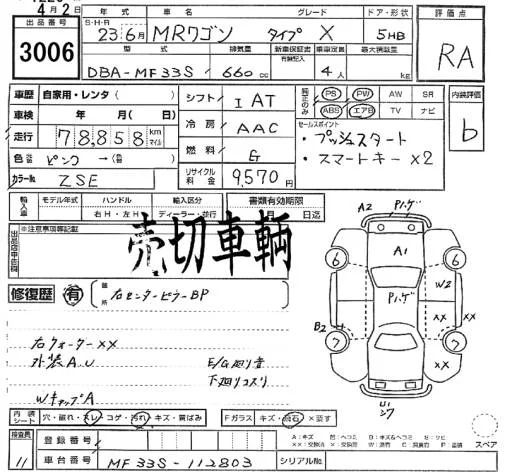 4月2
出品番号
3006
S・H・R 年式 車名 グレード ドア・形状
23年6月 MRワゴン タイプ X 5HB
型式 排気量 新車保証書 乗車定員 最大積載量
有無記入
DBA-MF33S 660cc 4人 kg
評価点
RA
車歴 自家用・レンタ( )
車検 年 月( 日)
走行 78,858 km マイル
色 ピンク →(色)
カラーNo. ZSE
シフト IAT
冷房 AAC
燃料 G
リサイクル料金 9,570円
純正のみ PS PW AW SR
ABS エアB TV ナビ
セールスポイント
・プッシュスタート
・スマートキー x2
内装評価
b
輸入車 モデル年式 ハンドル 輸入区分
右H・左H ディーラー・並行
書類有効期限
月 日迄
出品店申告欄
※注意事項等記載
売切車輌
修復歴 有 箇所 右センターピラーBP
右クォーターXX
外装A.U E/G廻り音
下廻りコスリ
WキャップA
内装シート 穴・破れ・スレ・コゲ・汚れ・キズ・黄ばみ
Fガラス キズ・飛石・X要す
検査員 11
登録番号
車台番号 MF33S-112803
シリアルNo.
A2 Pハゲ
A1
6 6
W2
Pハゲ
XX
B2
7 XX 7
U1
スペア